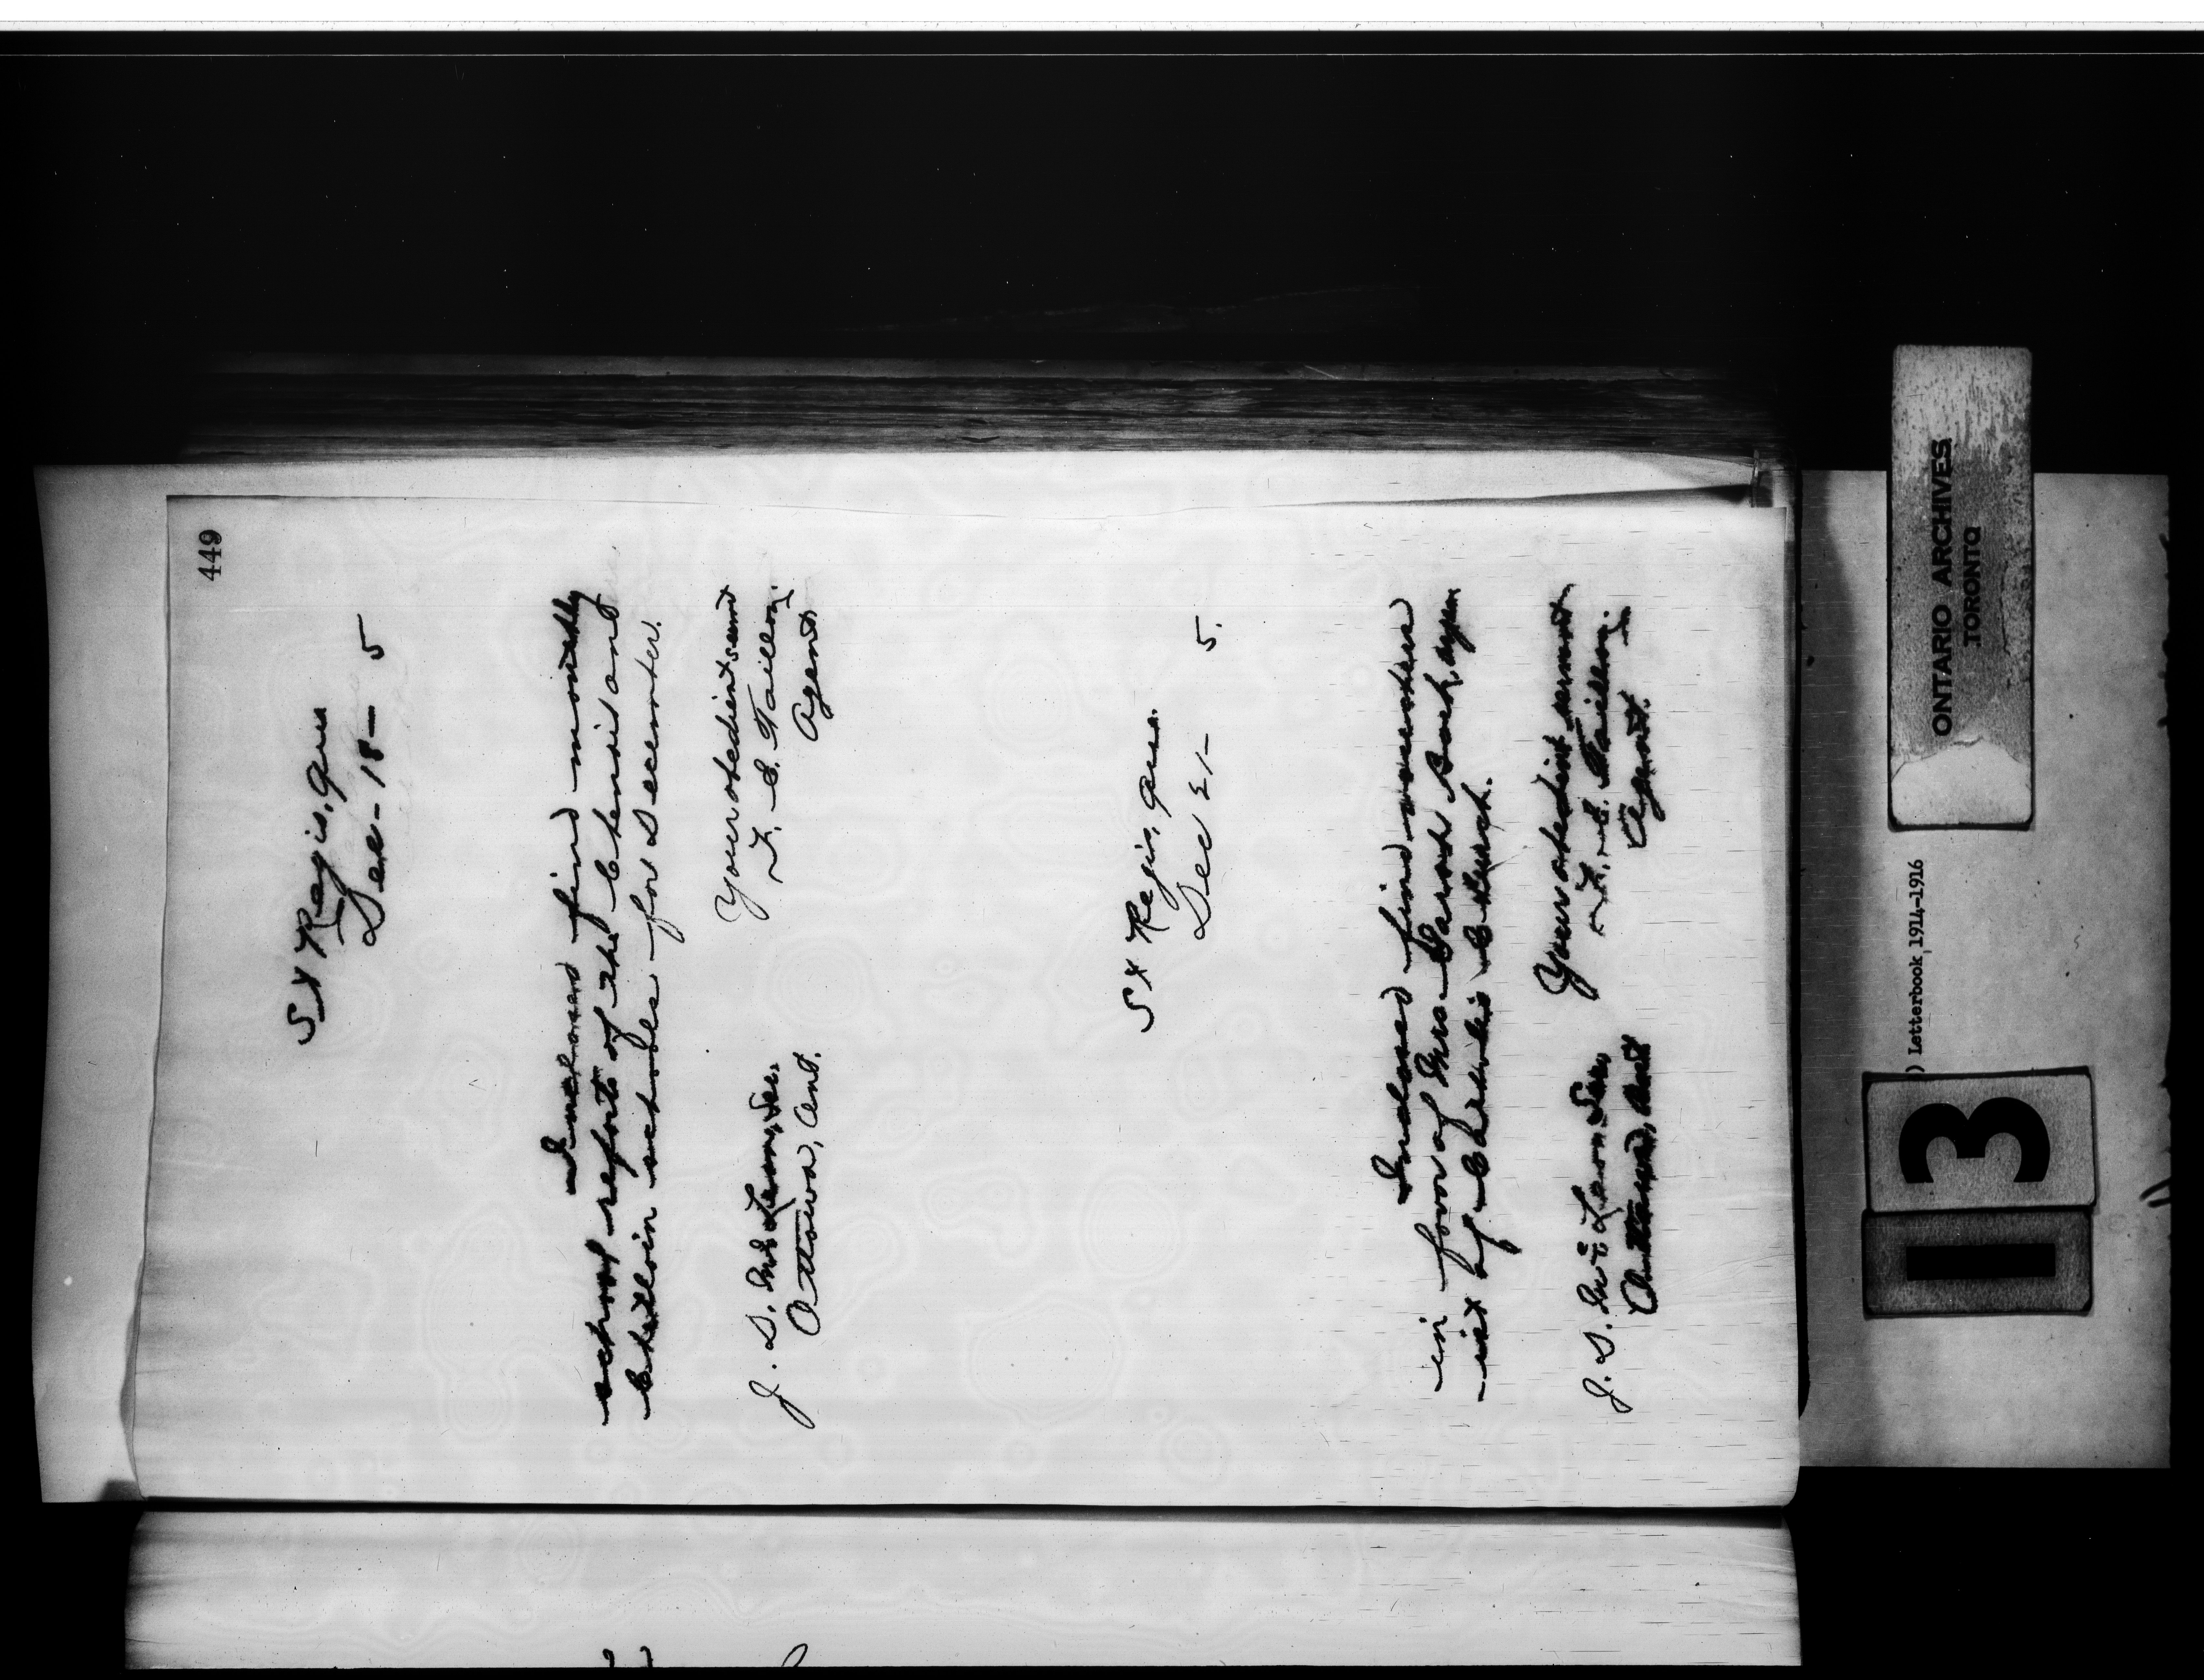 449
St Regis, Que
Dec - 18 - 5
Inclosed find monthly
school reports of the Chenail and
schools for December.
Your obedient servt
F. E. Taillon,
Agent.
J. D. McLean, Sec.
Ottawa, Ont.
St Regis, Que.
Dec 21 - 5.
Inclosed find voucher
in favor of Mrs. Sarah Back,
by Charlie Church.
Your obedient servant
F. E. Taillon,
Agent.
J. D. McLean Sec,
Ottawa, Ont
ONTARIO ARCHIVES
TORONTO
) Letterbook, 1914-1916
113